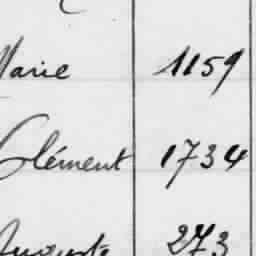 Marie 1159
Clément 1734
Auguste 273